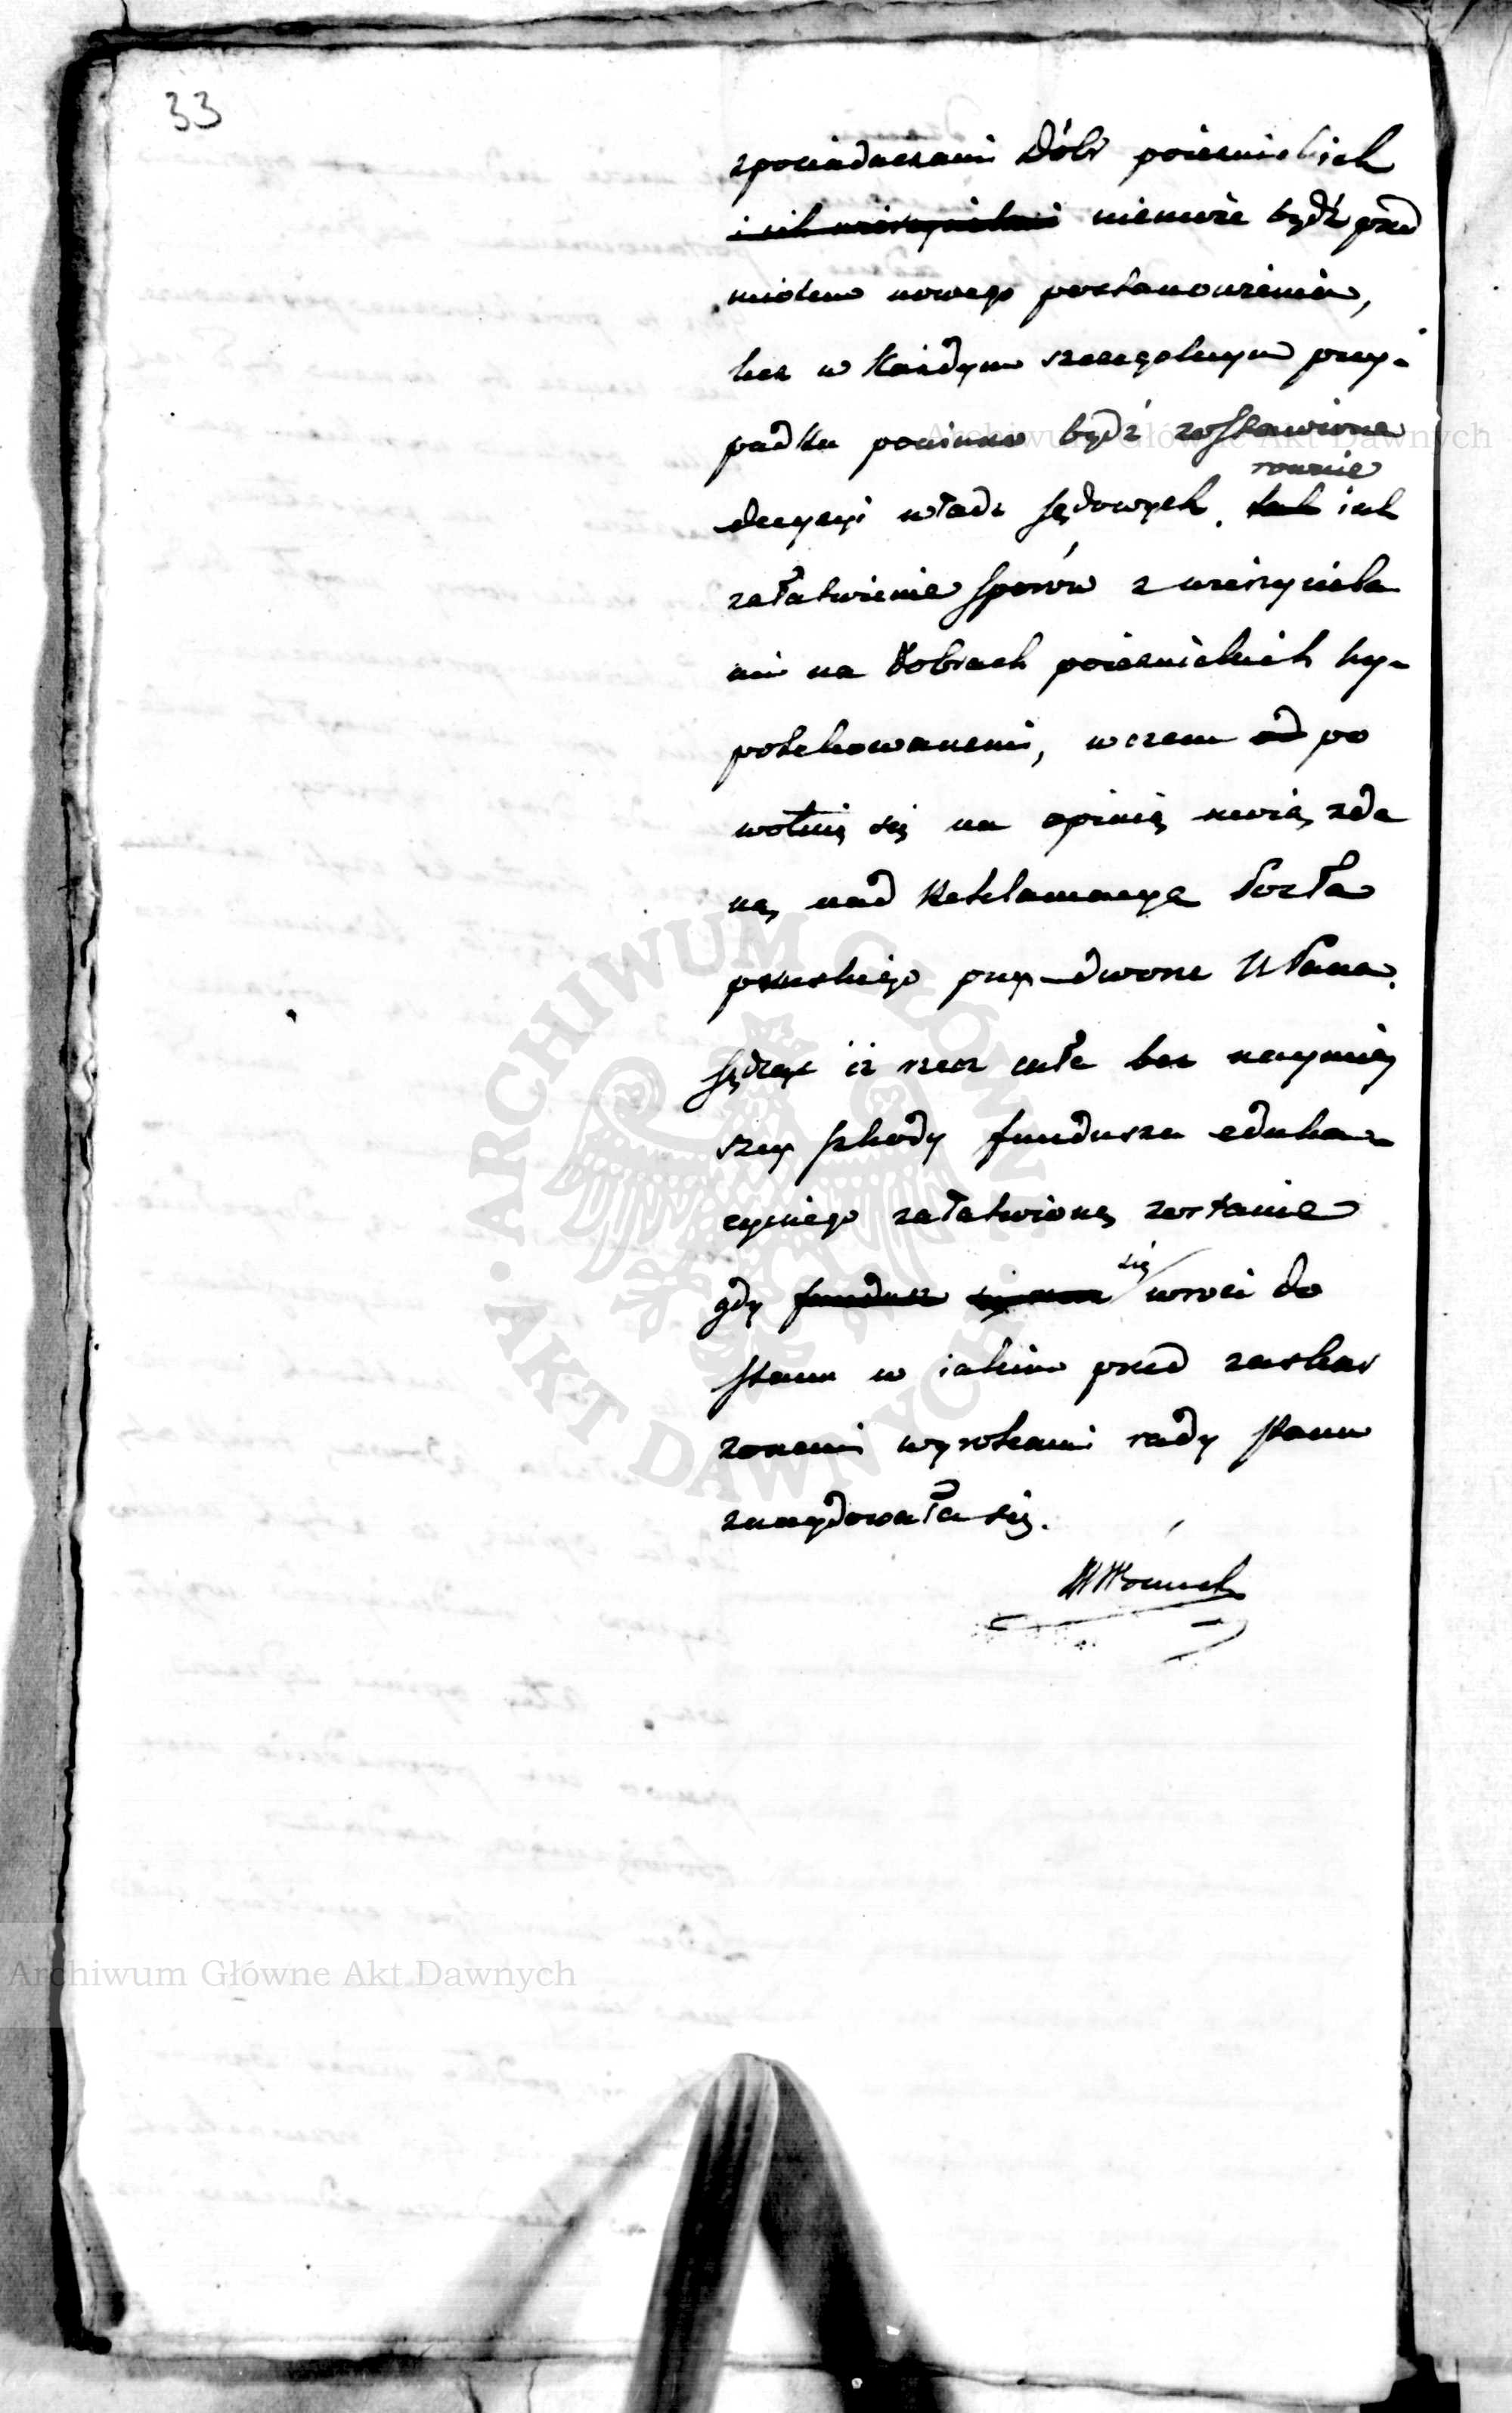 33
z posiadaczami Dóbr poiezuickich
i ich wierzycielami niemoże bydź przed
miotem nowego postanowienia,
lecz w każdym szczegolnym przy-
padku powinno bydź zostawione
równie
decyzyi władz sądowych. tak iak
załatwienie sporów z wierzyciela
mi na dobrach poiezuickich hy-
potekowanemi, w czem od po
wołuię się na opinią moią zda
ną nad Reklamacyą Posła
pruskiego przy dworze W Pana.
sądząc iż rzecz cała bez naymniey
szey szkody funduszu eduka-
cyinego załatwioną zostanie
się
gdy fundusz wroci do
stanu w iakim przed zaskar
żonemi wyrokami rady stanu
znaydowała się.
Archiwum Główne Akt Dawnych
ARCHIWUM GŁÓWNE AKT DAWNYCH
Archiwum Główne Akt Dawnych